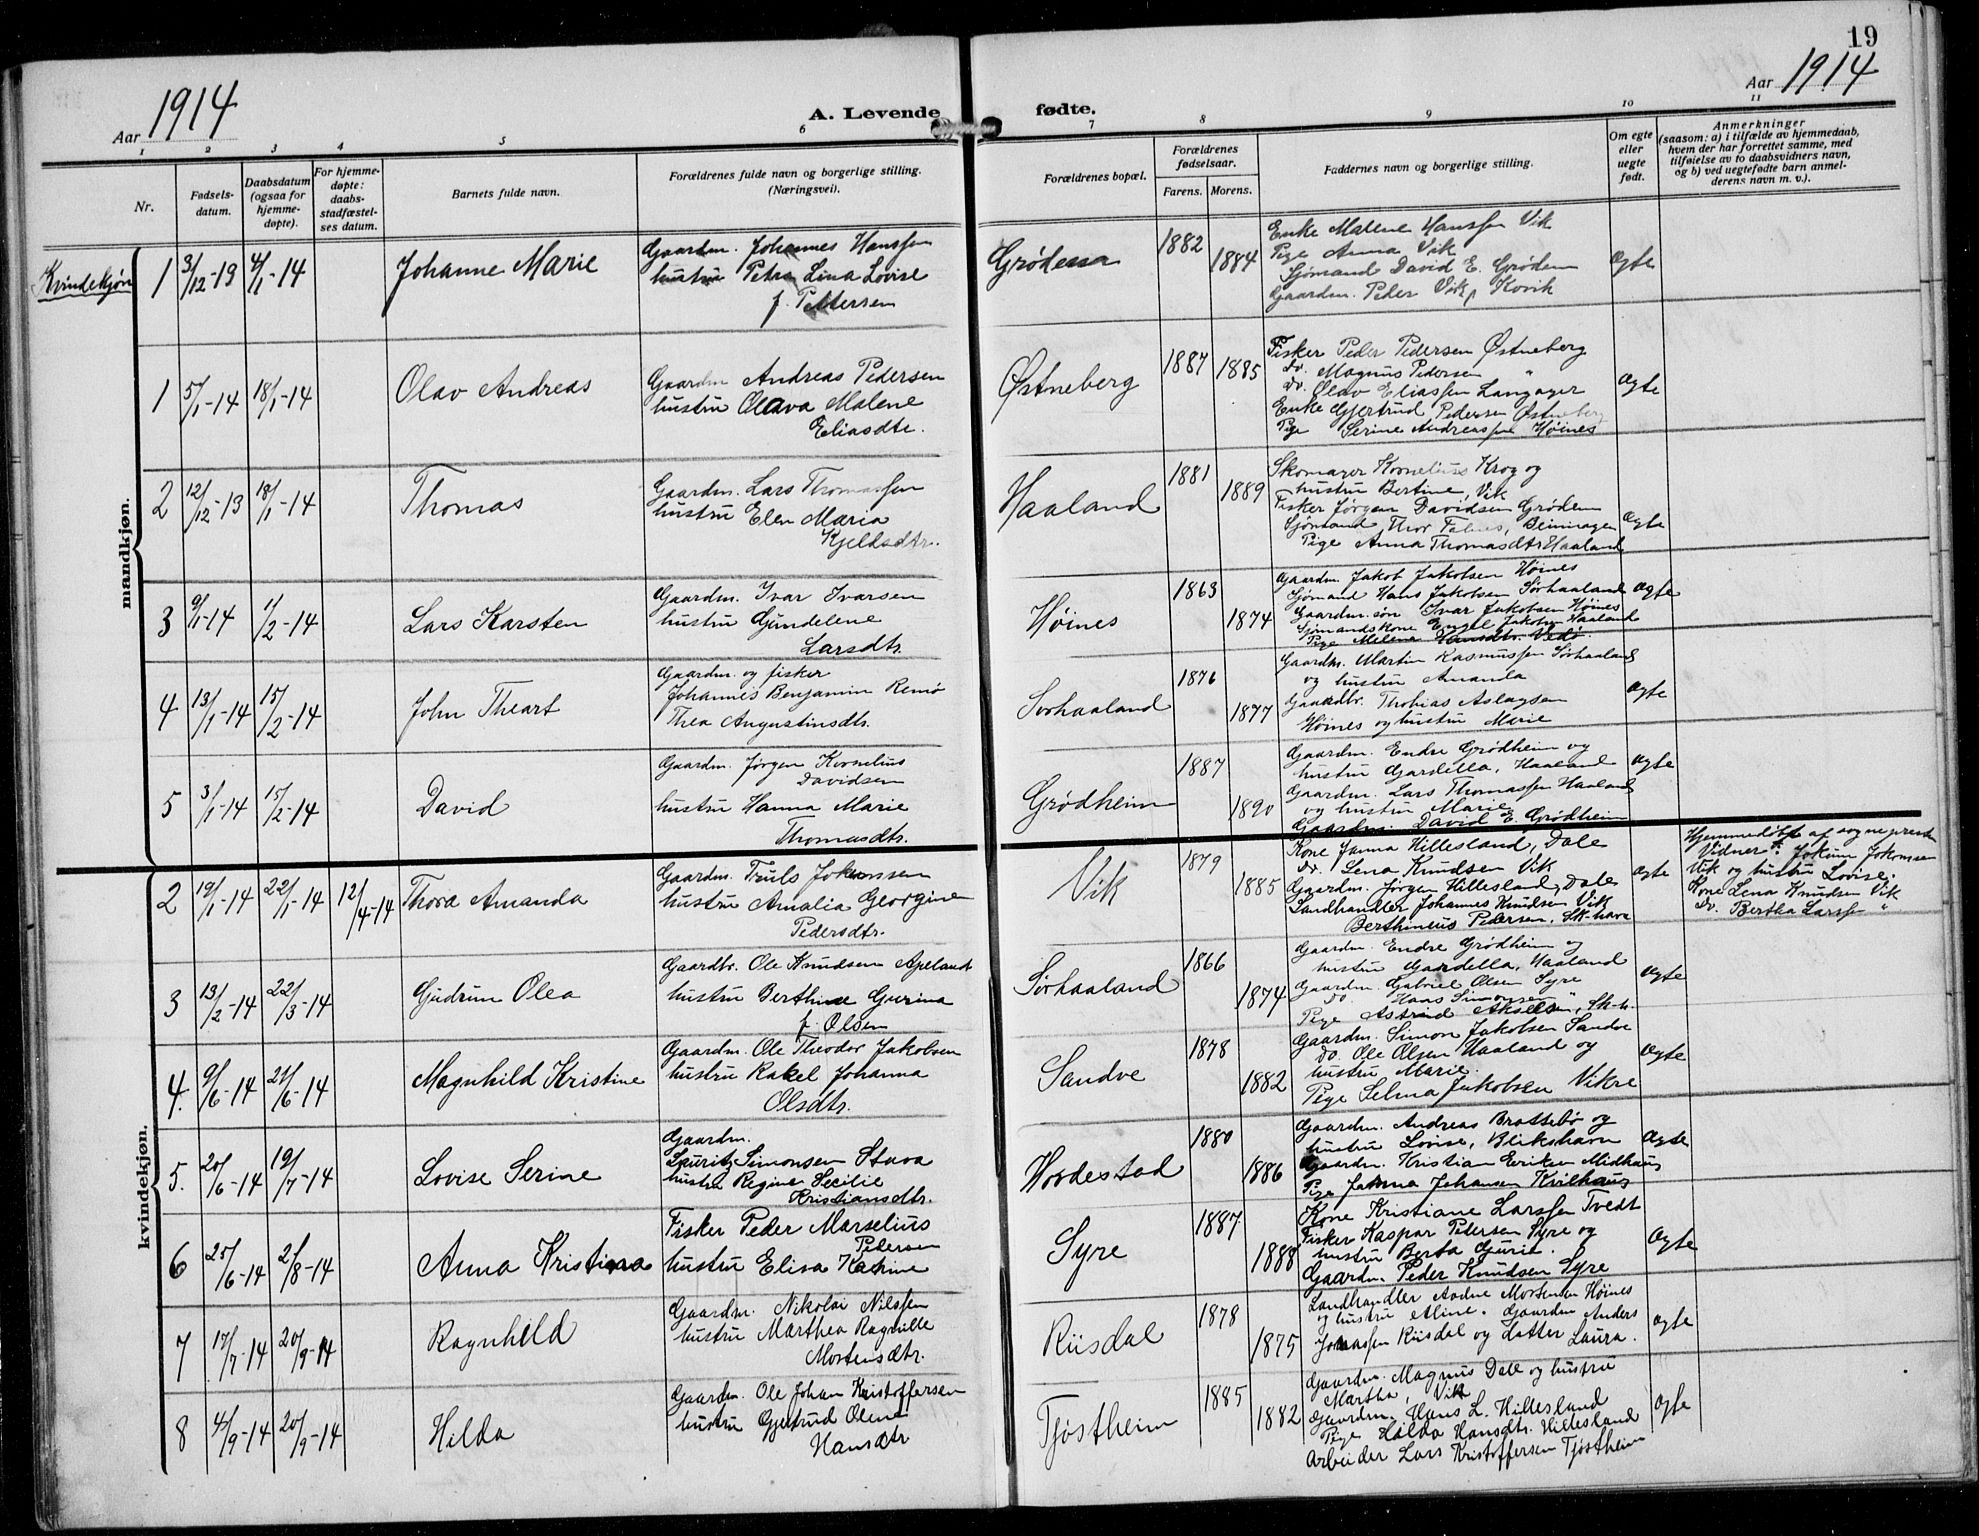 19
Aar 1914
A. Levende fødte.
Aar 1914
1 2 3 4 5 6 7 8 9 10 11
Nr.
Fødsels-
datum.
Daabsdatum
(ogsaa for
hjemme-
døpte).
For hjemme-
døpte:
daabs-
stadfæstel-
ses datum.
Barnets fulde navn.
Forældrenes fulde navn og borgerlige stilling.
(Næringsvei).
Forældrenes bopæl.
Forældrenes
fødselsaar.
Farens. Morens.
Faddernes navn og borgerlige stilling.
Om egte
eller
uegte
født.
Anmerkninger
(saasom: a) i tilfælde av hjemmedaab,
hvem der har forrettet samme, med
tilføielse av to daabsvidners navn,
og b) ved uegtefødte barn anmel-
derens navn m. v.).
Kvindekjøn
1 3/12-13 4/1-14 Johanne Marie
Gaardm. Johannes Hanssen
hustru Petra Lina Lovise
f. Pettersen
Grødem 1882 1884
Enke Malene Hanssen Vik
Pige Anna Vik
Sjømand David E. Grødem
Gaardm. Peder Vik, Kovik
Ægte
mandkjøn.
1 5/1-14 18/1-14 Olav Andreas
Gaardm Andreas Pedersen
hustru Olava Malene
Eliasdtr.
Østneberg 1887 1885
Fisker Peder Pedersen Østneberg
do. Magnus Pedersen "
do. Olav Eliassen Langager
Enke Gjertrud Pedersen Østneberg
Pige Serine Andreassen Høines
Ægte
2 12/12-13 18/1-14 Thomas
Gaardm. Lars Thomassen
hustru Elen Maria
Kjeldsdtr.
Haaland 1881 1889
Skomager Kornelius Krog og
hustru Bertine, Vik
Fisker Jørgen Davidsen Grødem
Sjømand, Thor
Pige Anna Thomasdtr Haaland
Ægte
3 9/1-14 1/2-14 Lars Karsten
Gaardm. Ivar Ivarsen
hustru Gundelene
Larsdtr.
Høines 1863 1874
Gaardm. Jakob Jakobsen Høines
Sjømand Hans Jakobsen Sørhaaland
Gaardm.søn Ivar Jakobsen Høines
Sjømandskone Engel Jakobsen Haaland
Pige Melena Hansdtr. Vedø
Ægte
4 13/1-14 15/2-14 John Theart
Gaardm. og fisker
Johannes Benjamin Remø
Thea Augustinsdtr.
Sørhaaland 1876 1877
Gaardm. Martin Rasmussen Sørhaaland
og hustru Amanda
Gaardbr. Thobias Aslagsen
Høines og hustru Marie
Ægte
5 3/1-14 15/2-14 David
Gaardm. Jørgen Kornelius
Davidsen
hustru Hanna Marie
Thomasdtr.
Grødheim 1887 1890
Gaardm. Endre Grødheim og
hustru Gardella, Haaland
Gaardm. Lars Thomassen Haaland
og hustru Marie
Gaardm. David E. Grødheim
Ægte
kvindekjøn.
2 19/1-14 22/1-14 12/4-14 Thora Amanda
Gaardm. Truls Jokumsen
hustru Amalia Georgine
Pedersdtr.
Vik 1879 1885
Kone Janna Hillesland, Dale
do. Lena Knudsen Vik
Gaardm. Jørgen Hillesland, Dale
Landhandler Johannes Knudsen Vik
Berthineus Pedersen, Sk-havn
Ægte
Hjemmedøbt af sogneprest
Vidner: Jokum Jokumsen
Vik og hustru Lovise.
Kone Lena Knudsen Vik
Do. Bertha Larssen "
3 13/2-14 22/3-14 Gudrun Olea
Gaardbr. Ole Knudsen Apeland
hustru Berthine Gurina
f. Olsen
Sørhaaland 1866 1874
Gaardm. Endre Grødheim og
hustru Gardella, Haaland
Gaardm. Gabriel Olsen Syre
do. Hans Simonsen "
Pige Astrid Akselsen, Sk-h.
Ægte
4. 9/6-14 21/6-14 Magnhild Kristine
Gaardm. Ole Theodor Jakobsen
hustru Rakel Johanna
Olsdtr.
Sandve 1878 1882
Gaardm. Simon Jakobsen Sandve
Do. Ole Olsen Haaland og
hustru Marie.
Pige Selma Jakobsen Vikre
Ægte
5. 20/6-14 19/7-14 Lovise Serine
Gaardm.
Lauritz Simonsen Stava
hustru Regine Secilie
Kristiansdtr.
Hordestad 1880 1886
Gaardm. Andreas Brattebø og
hustru Lovise, Blikshavn
Gaardm. Kristian Eriksen Midhaug
Pige Janna Johansen Kvilhaug
Ægte
6 25/6-14 2/8-14 Anna Kristiana
Fisker Peder Marselius
Pedersen
hustru Elisa Katrine
Syre 1887 1888
Kone Kristiane Larssen Tvedt
Fisker Kaspar Petersen Syre og
hustru Berta Gurie.
Gaardm. Peder Knudsen Syre
Ægte
7 17/7-14 20/9-14 Ragnhild
Gaardm. Nikolai Nilssen
hustru Marthea Ragnille
Mortensdtr.
Riisdal 1878 1875
Landhandler Aadne Mortensen Høines
og hustru Aline. Gaardm Anders
Jonassen Riisdal og datter Laura.
Ægte
8 4/9-14 20/9-14 Hilda
Gaardm. Ole Johan Kristoffersen
hustru Gjetrud Olena
Hansdtr
Tjøstheim 1885 1882
Gaardm. Magnus Dale og hustru
Martha, Vik
Gaardm. Hans L. Hillesland
Pige Hilda Hansdtr. Hillesland
Arbeider Lars Kristoffersen Tjøstheim
Ægte